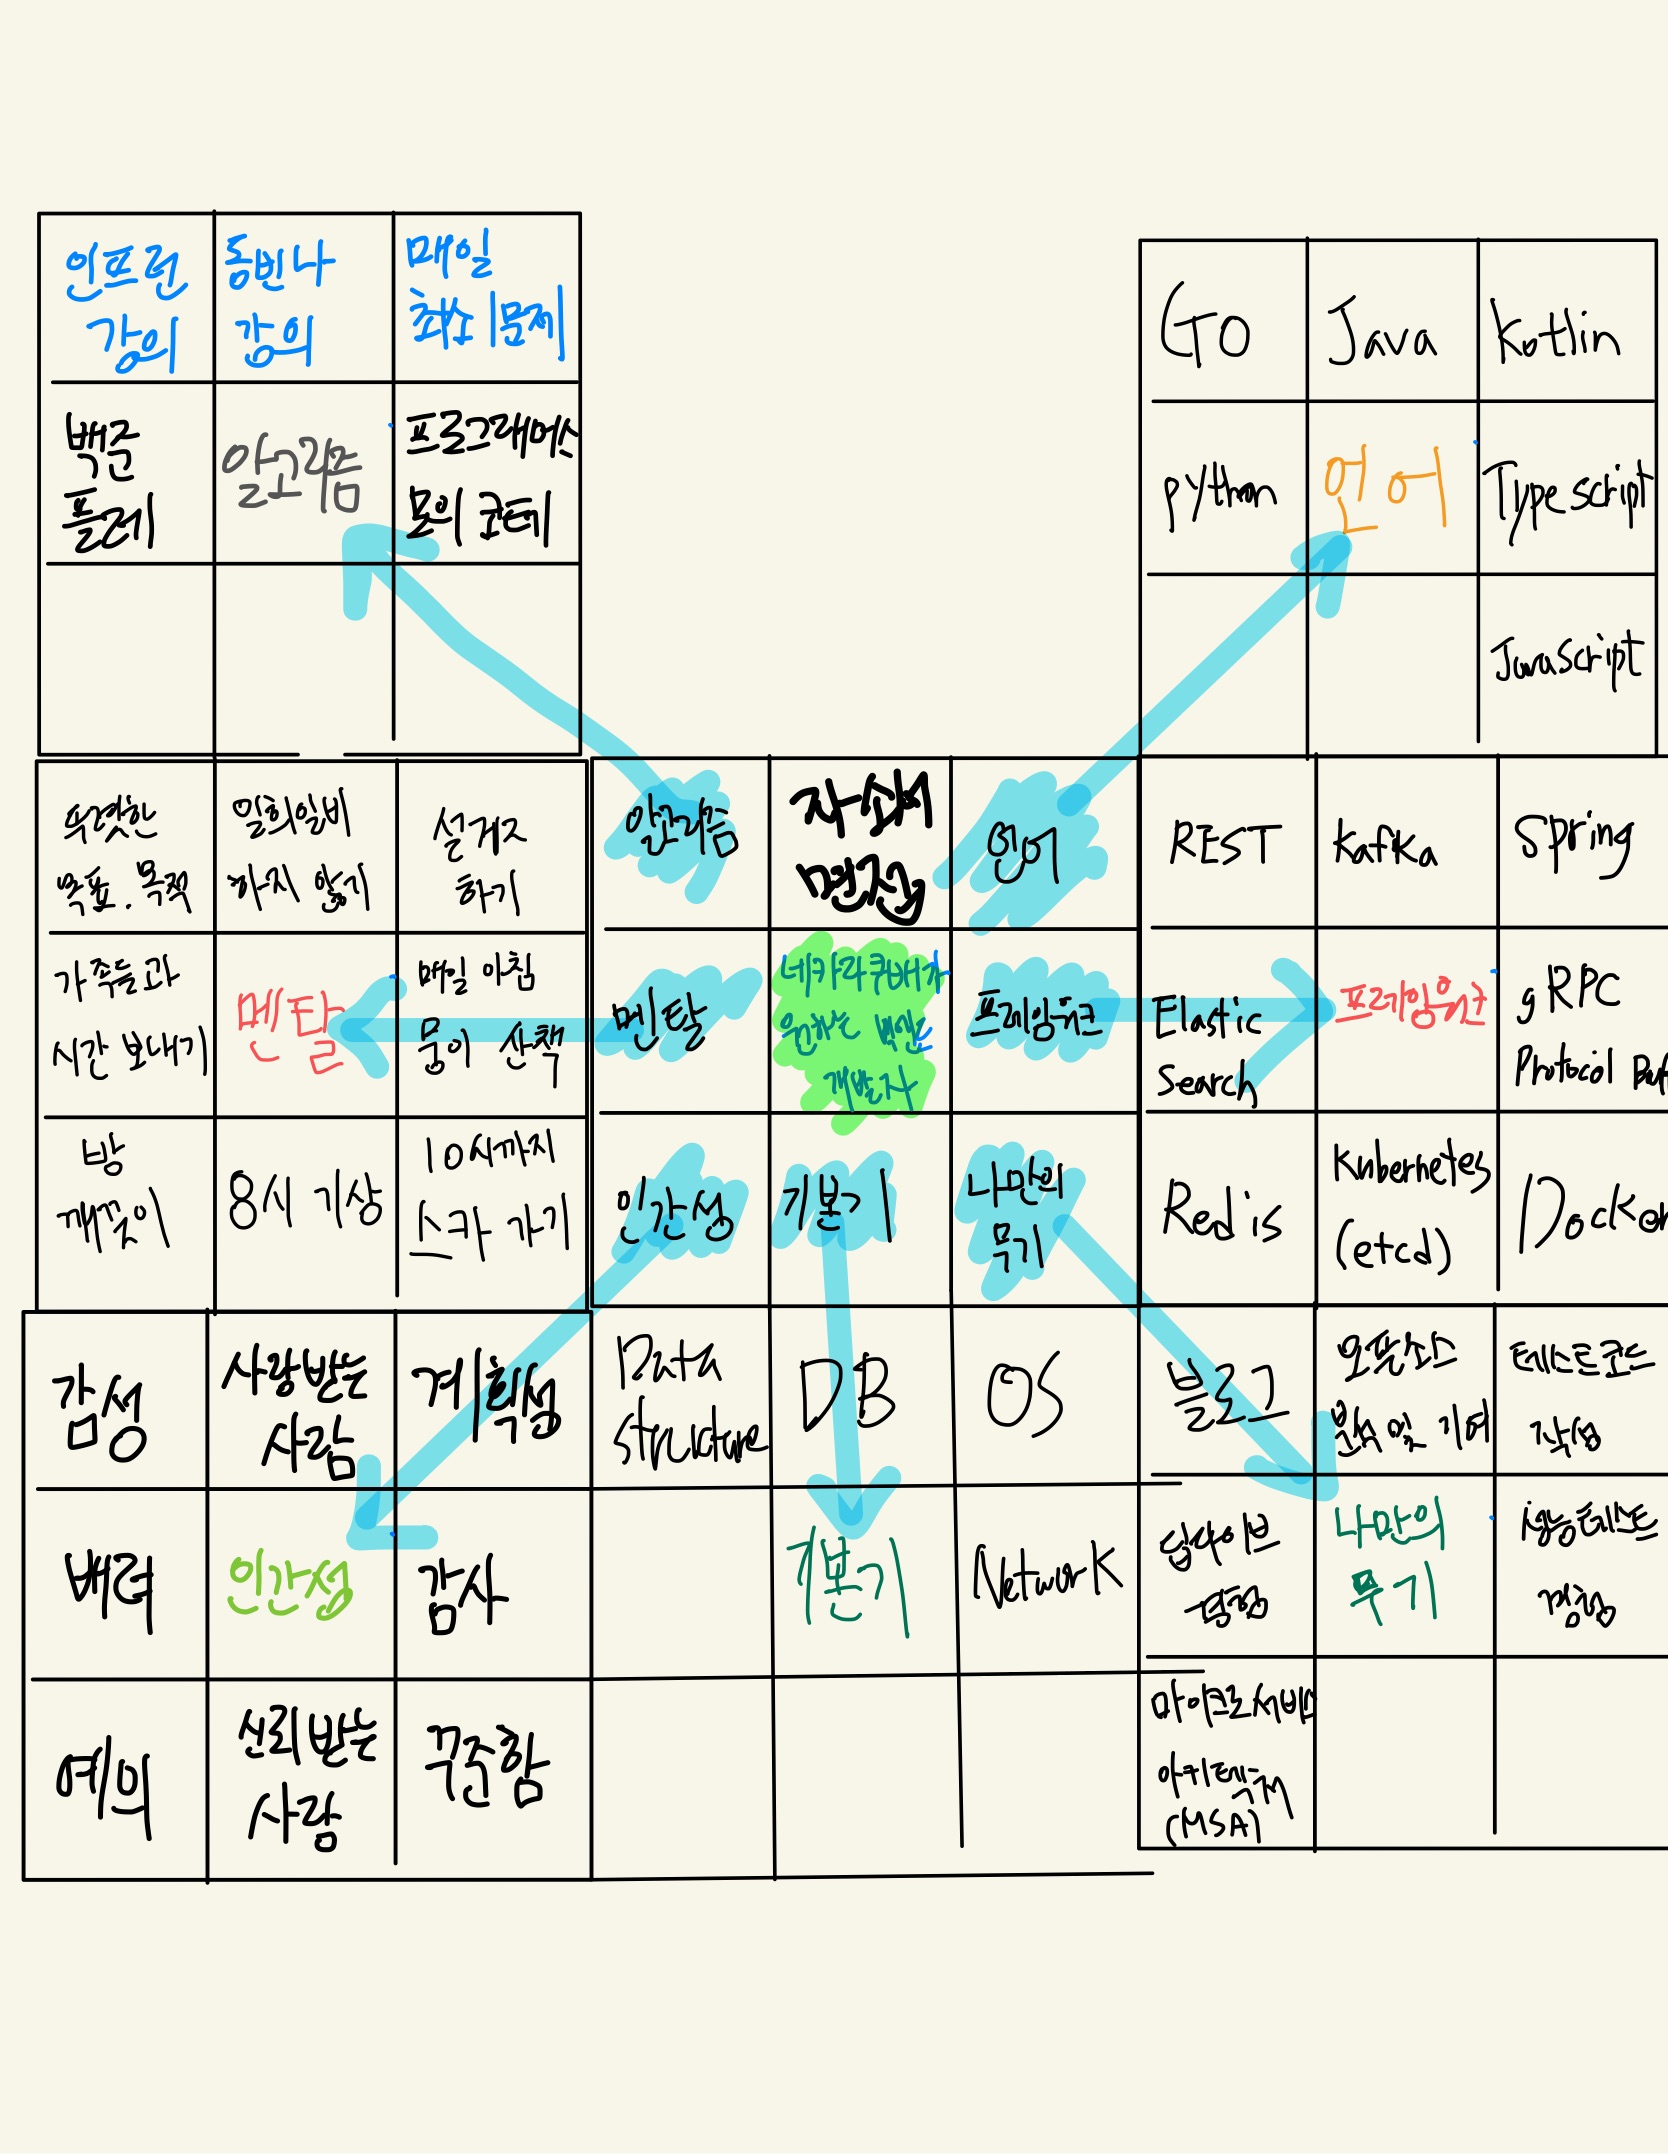 인프런
강의
동빈나
강의
매일
최소 1문제
백준
플레
알고리즘
프로그래머스
모의 코테
GO
Java
Kotlin
python
언어
Typescript
Javascript
뚜렷한
목표. 목적
일희일비
하지 않기
설거지
하기
가족들과
시간 보내기
멘탈
매일 아침
뭉이 산책
방
깨끗이
8시 기상
10시까지
스카 가기
알고리즘
자소서
면접
언어
멘탈
네카라쿠배가
원하는 백엔드
개발자
프레임워크
인간성
기본기
나만의
무기
REST
Kafka
Spring
Elastic
Search
프레임워크
gRPC
Protocol Buf
Redis
Kubernetes
(etcd)
Docker
감성
사랑받는
사람
계획성
배려
인간성
감사
예의
신뢰받는
사람
꾸준함
Data
structure
DB
OS
기본기
Network
블로그
오픈소스
분석 및 기여
테스트코드
작성
딥다이브
경험
나만의
무기
성능테스트
경험
마이크로서비스
아키텍쳐
(MSA)